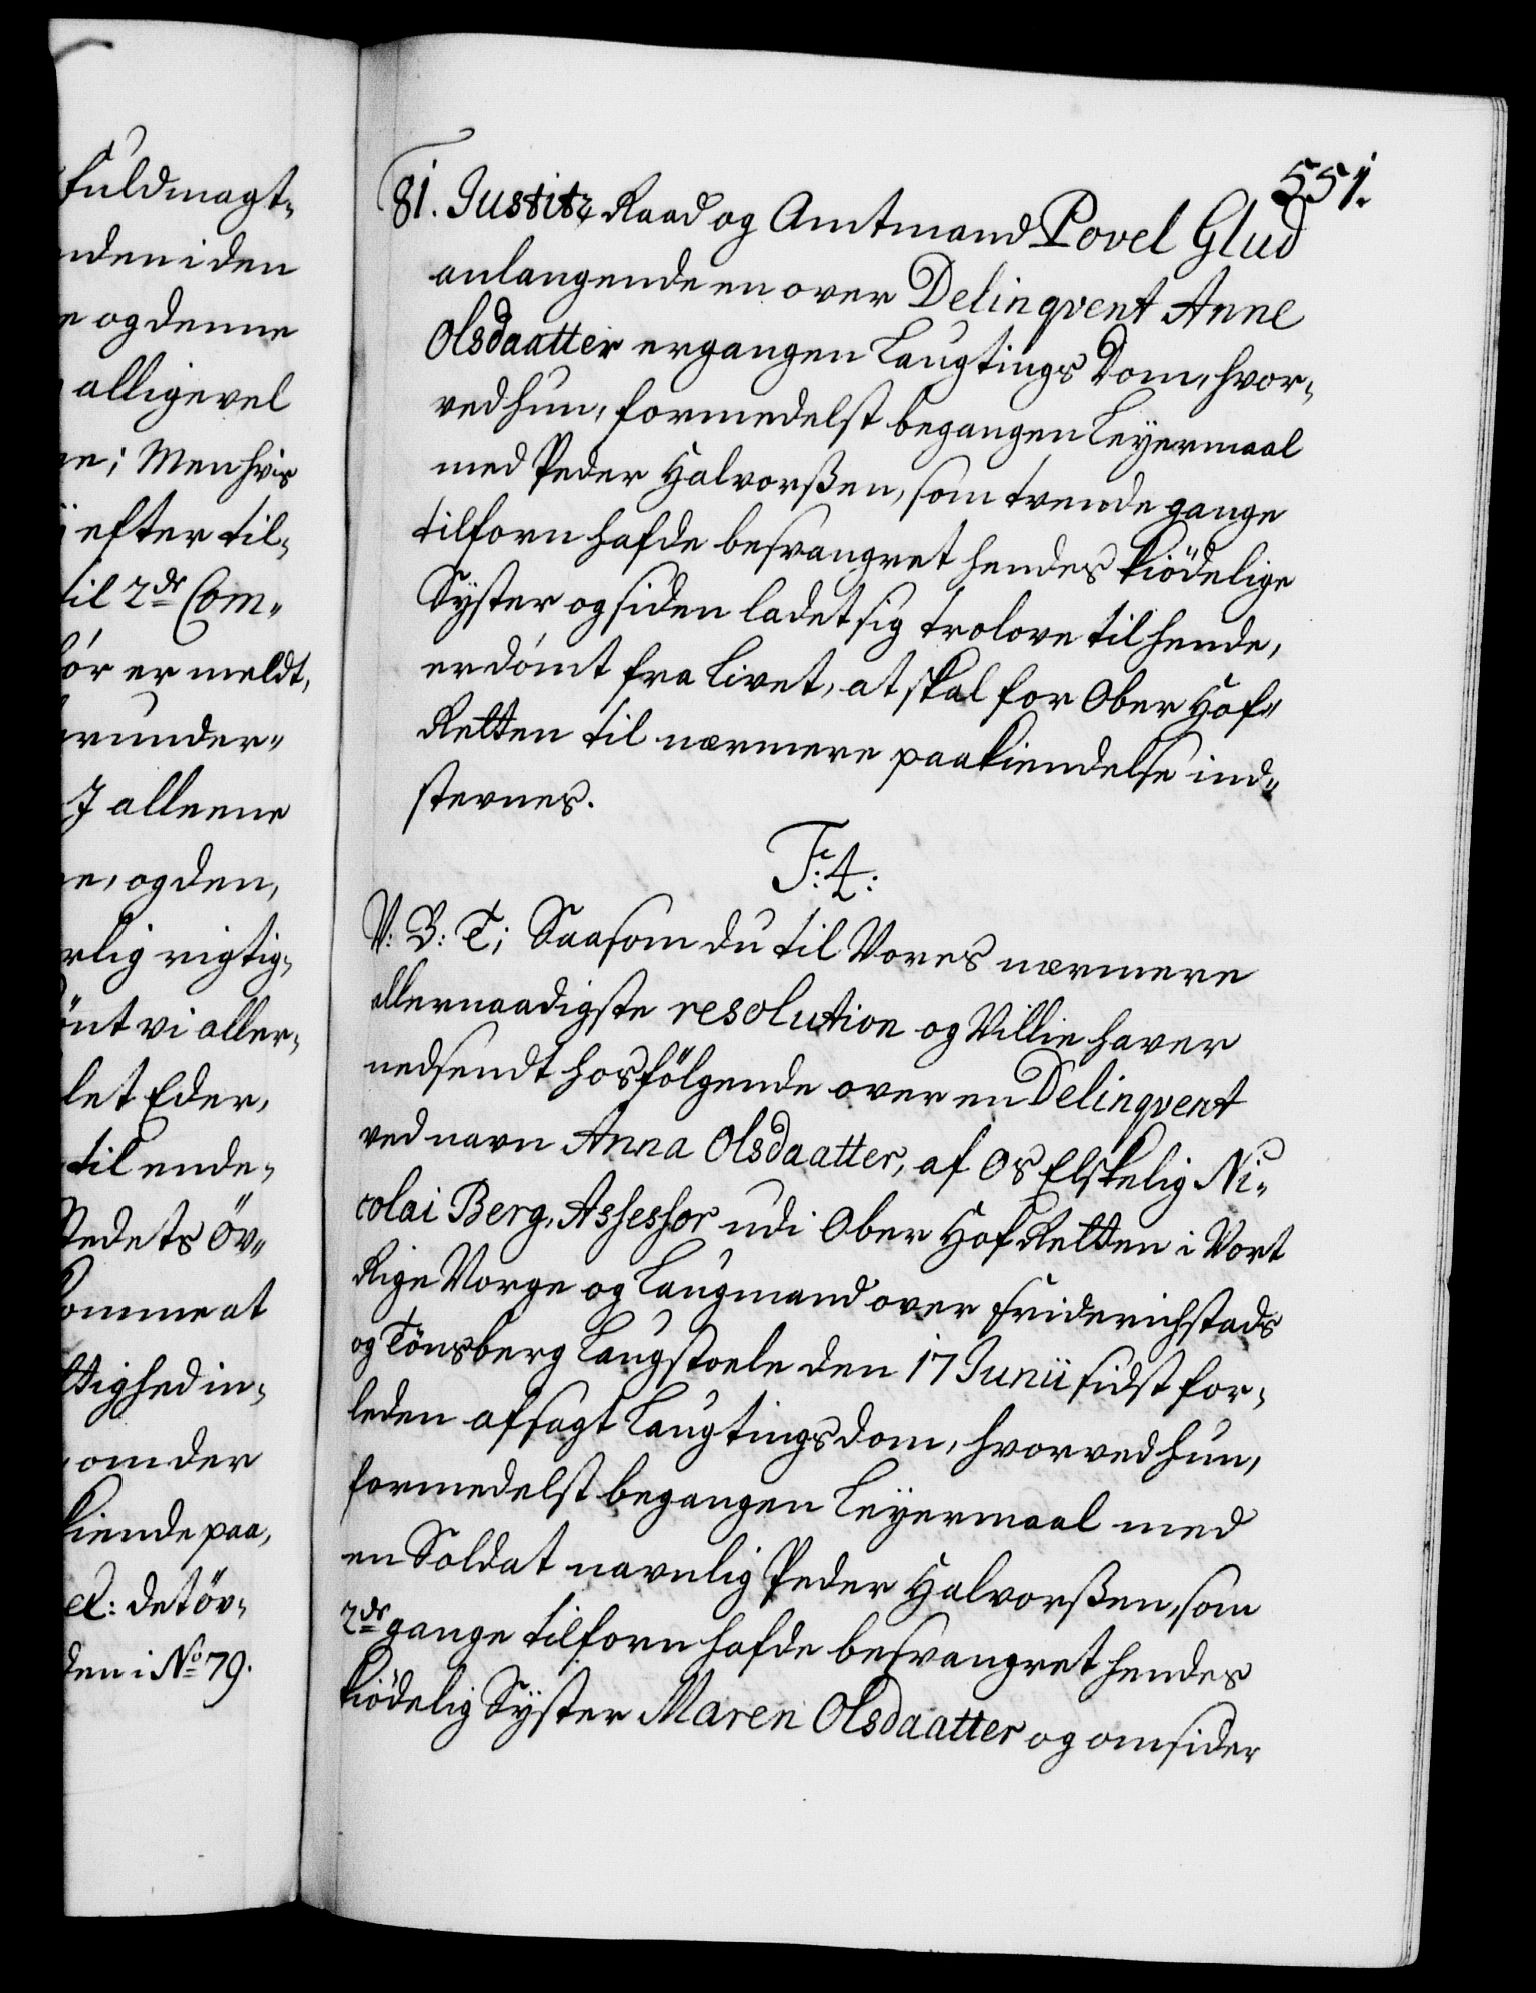 fuldmagt-
nden i den
e og denne
alligevel
ne; Men hvis
ÿ efter til-
til 2de Com-
för er meldt,
runder-
J alleene
ne, og den,
rlig rigtig-
önt vi aller-
let Eder,
til ende-
Stedets öv-
komme at
ttighed in-
som der
kiende paa,
et: det öv-
den i No 79.
551.
81. Justitz Raad og Amtmand Povel Glud
anlangende en over Delinqvent Anne
Olsdaatter ergangen Laugtings Dom, hvor-
ved hun, formedelst begangen Leyermaal
med Peder Halvorßen, som tvende gange
tilforn hafde besvangret hendes kiödelige
Syster og siden ladet sig trolove til hende,
er dömt fra Livet, at skal for Ober Hof-
Retten til nærmere paakiendelse ind-
stevnes.
F: 4:
V: G: T; Saasom du til Vores nærmere
allernaadigste resolution og Villie haver
nedsendt hosfölgende over en Delinqvent
ved navn Anna Olsdaatter, af Os Elskelig Ni-
colai Berg, Assessor udi Ober Hof Retten i Vort
Rige Norge og Laugmand over Friderichstads
og Tönsberg Laugstoele den 17 Junii sidst for-
leden afsagt Laugtings dom, hvorved hun,
formedelst begangen Leyermaal med
en Soldat navnlig Peder Halvorßen, som
2de gange tilforn hafde besvangret hendes
kiödelig Syster Maren Olsdaatter og omsider